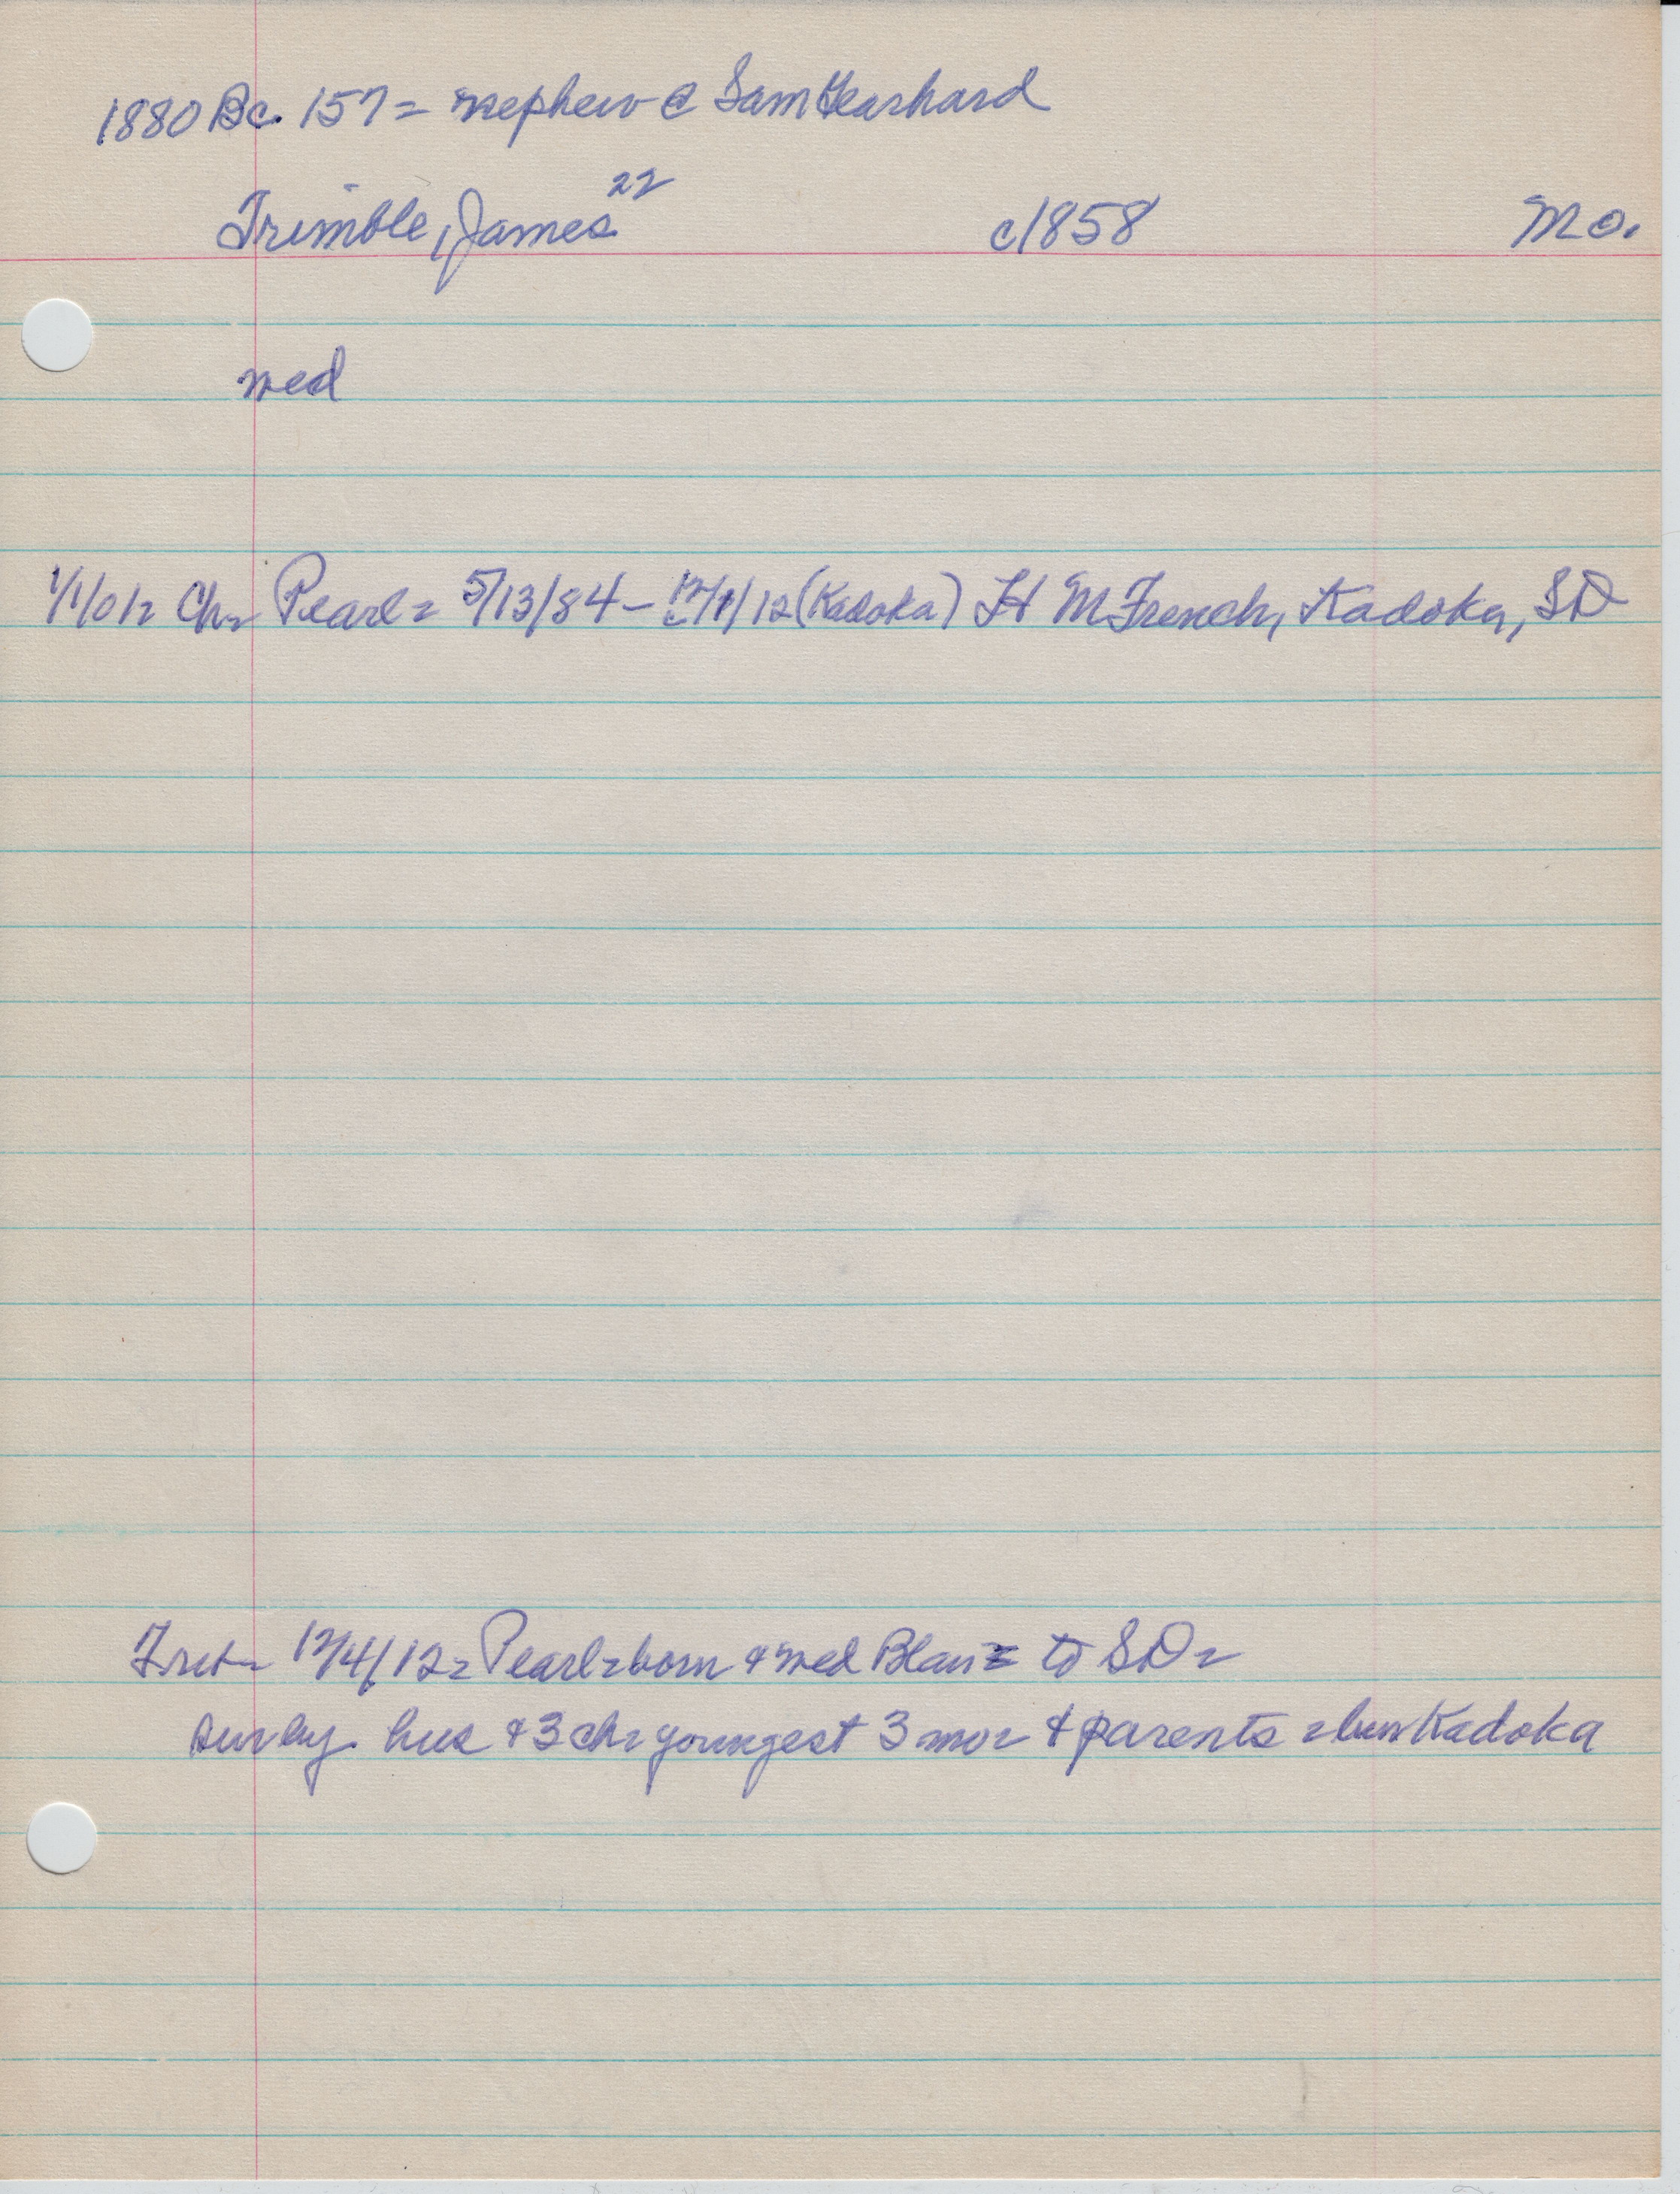 1880 Bc. 157 = nephew @ Sam Gearhard
22
Trimble, James c1858 Mo.
med
1/1/01= Ch= Pearl = 5/13/84 - 12/1/12 (Kadoka) H M French, Kadoka, SD
12/4/12= Pearl= born & med Blan= to SD=
surv by hus & 3 ch= youngest 3 mo= & parents =bur Kadoka